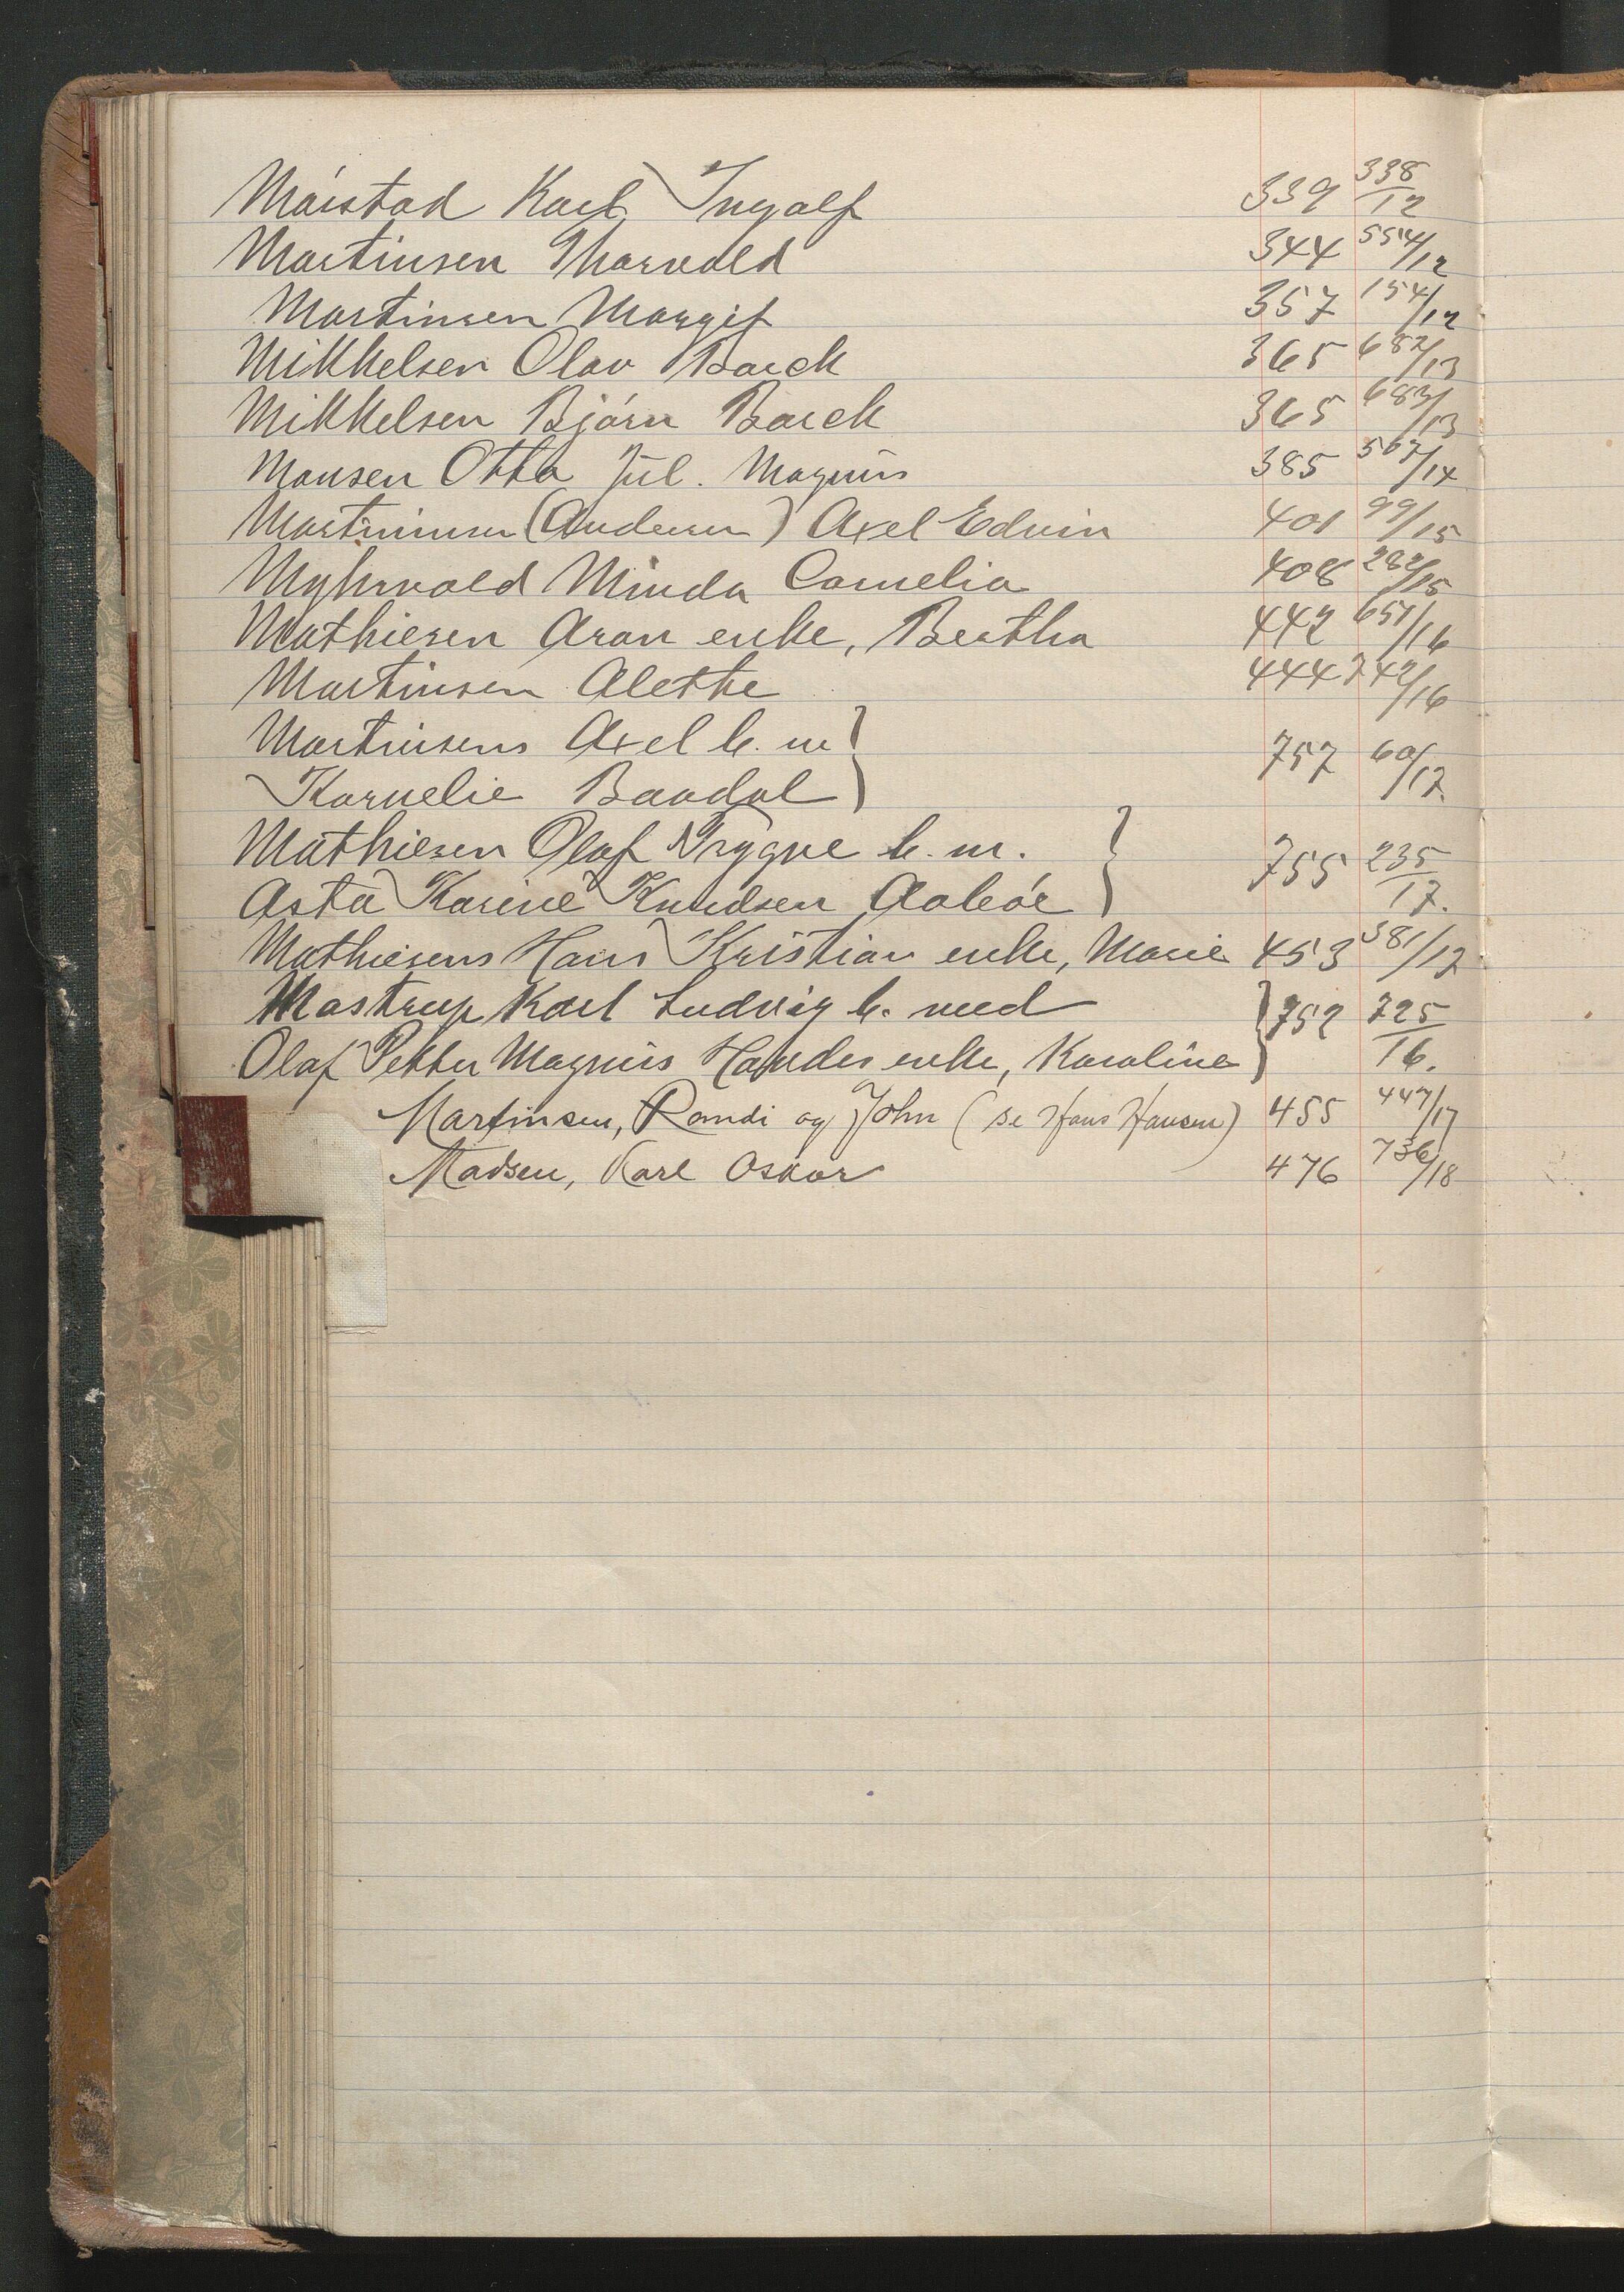 Mørstad Karl Ingolf 339 338/12
Martinsen Thorvald 344 554/12
Martinsen Margit 357 154/12
Mikkelsen Olav Barck 365 682/13
Mikkelsen Bjørn Barck 365 683/13
Monsen Otto Jul. Magnus 385 567/14
Martininsen (Andersen) Axel Edvin 401 99/15
Myhrvold Minda Cornelia 408 282/15
Mathiesen Aron enke, Bertha 442 651/16
Martinsen Alethe 444 742/16
Martinsens Axel b. m }
Kornelie Baadal } 757 60/17
Mathiesen Olaf Trygve b. m. }
Asta Karine Knudsen } 755 235/17.
Mathiesens Hans Kristian enke, Marie 453 381/17
Mostrup Karl Ludvig b. med } 752 725/16.
Olaf Petter Magnus enke, Karoline }
Martinsen, Randi og John (se Hans Hansen) 455 447/17
Madsen, Karl Oskar 476 736/18